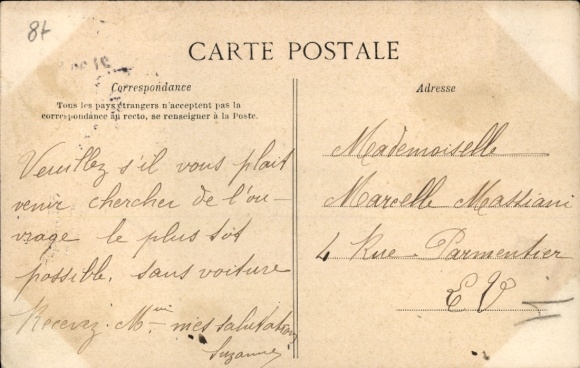 84
CARTE POSTALE
Correspondance
Tous les pays étrangers n'acceptent pas la
correspondance au recto, se renseigner à la Poste.
Veuillez s'il vous plait
venir chercher de l'ou-
vrage le plus tôt
possible, sans voiture
Recevez Melle mes salutations
Suzanne
Adresse
Mademoiselle
Marcelle Massiani
4 Rue Parmentier
E V